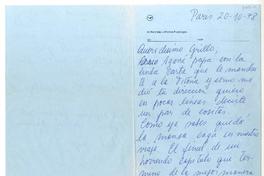 Paris 20-10-78
Queridísimo Grillo,
llegó papá con la
linda carta que le mandaste
a la Totoña y como me
dió tu dirección quiero
en pocas líneas decirte
un par de cositas
Como ya sabes quedó
la mansa cagá en nuestro
viaje. El final de un
horrendo capítulo que ter-
minó de la mejor manera